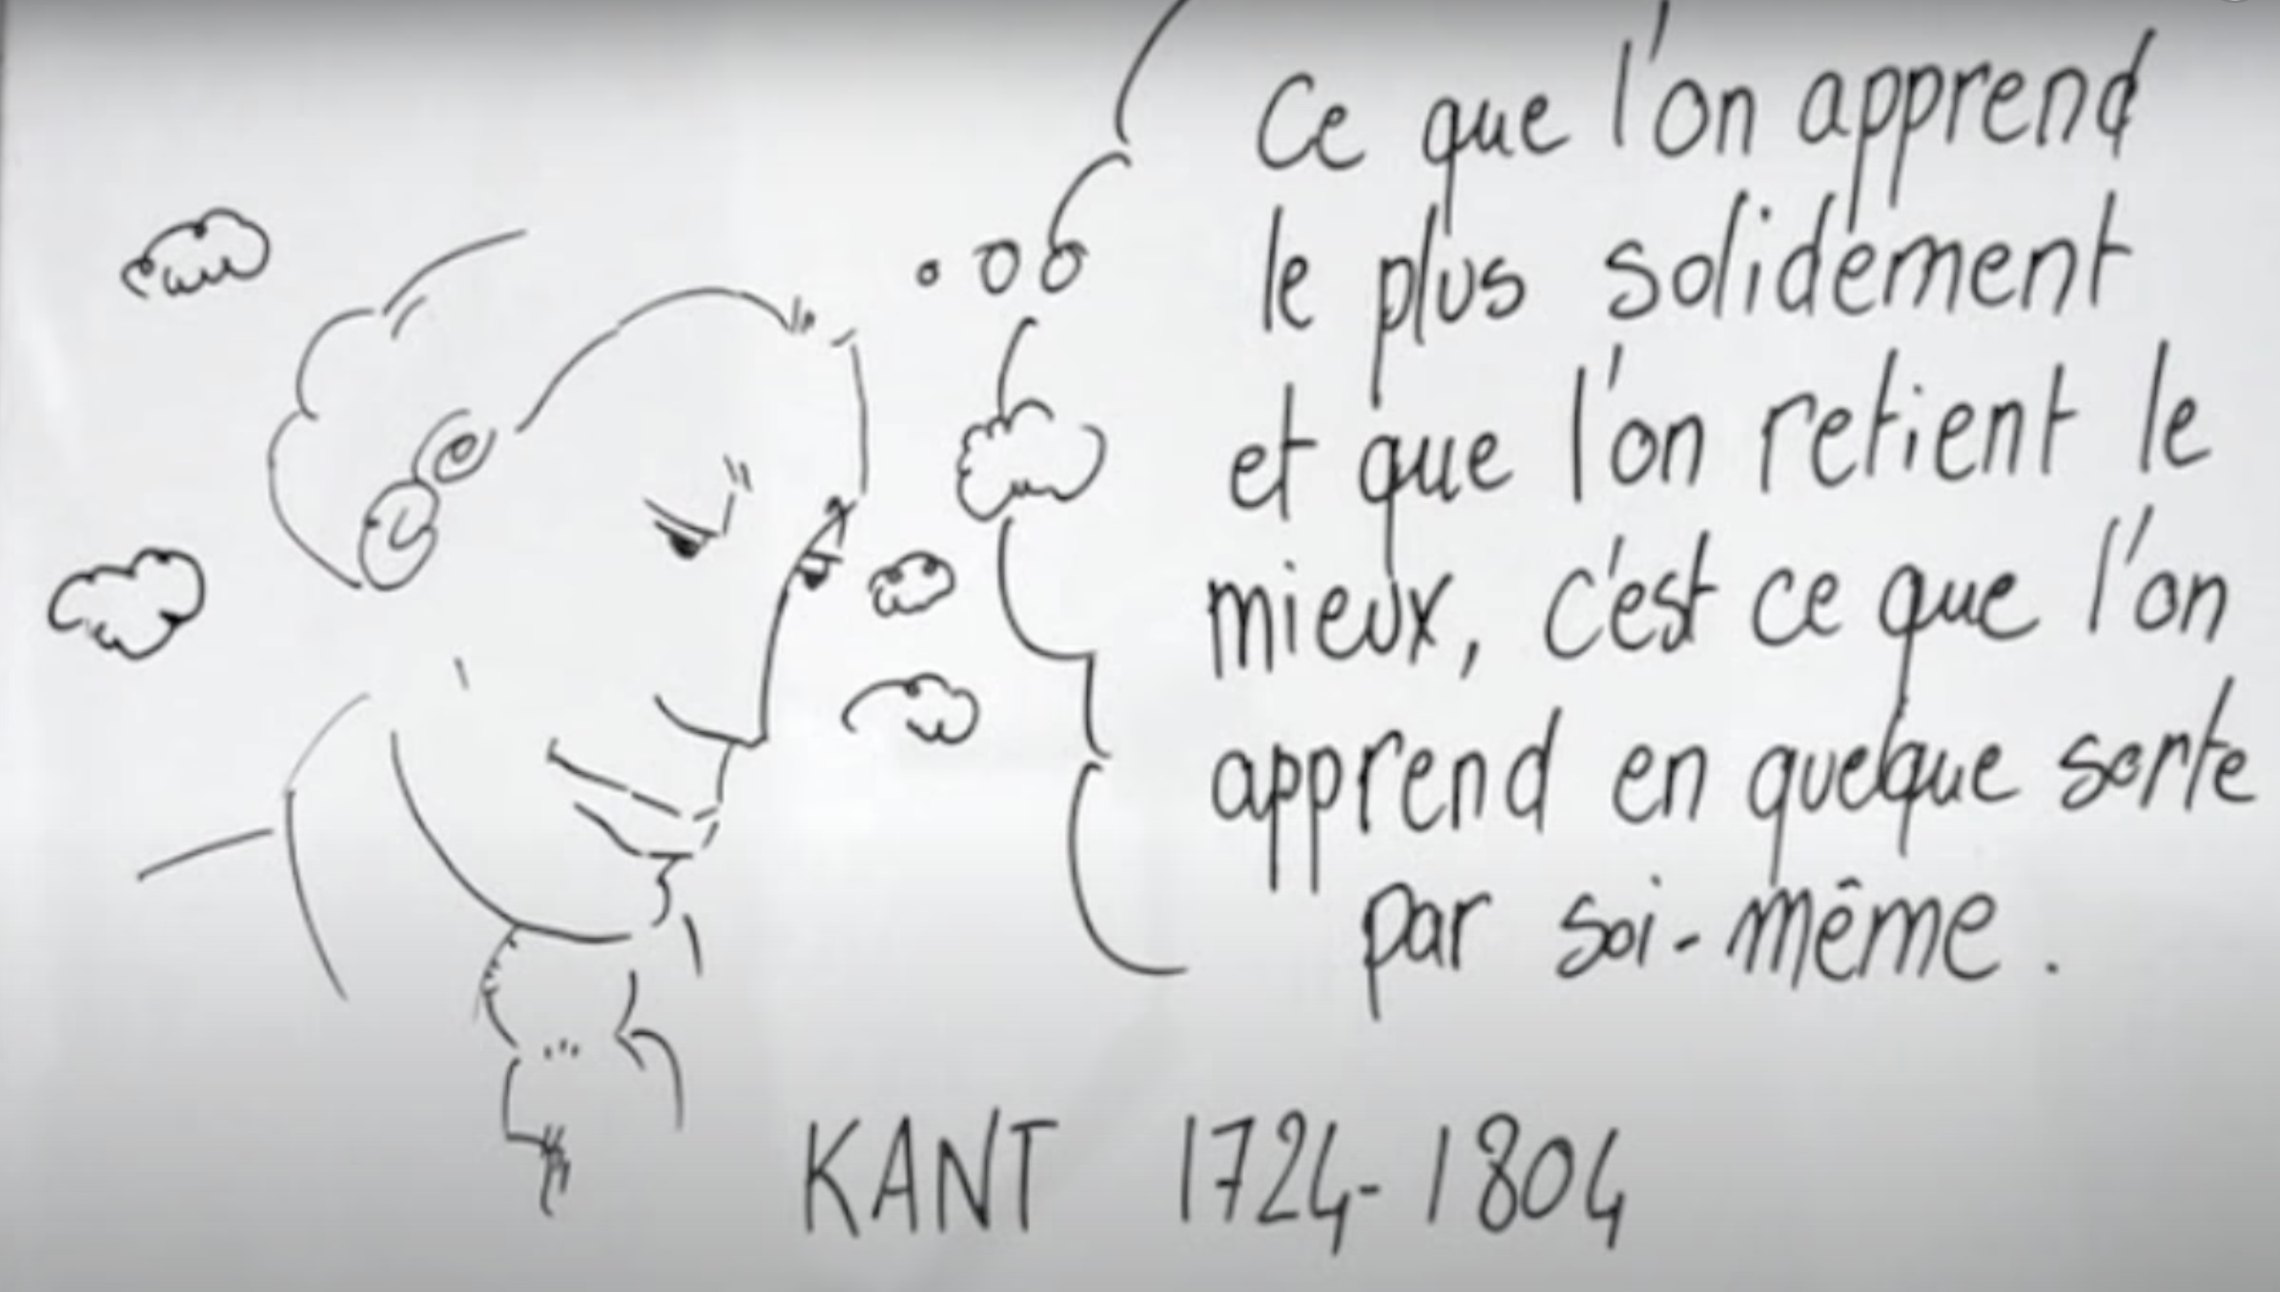 Ce que l'on apprend
le plus solidement
et que l'on retient le
mieux, c'est ce que l'on
apprend en quelque sorte
par soi-même.
KANT 1724-1804